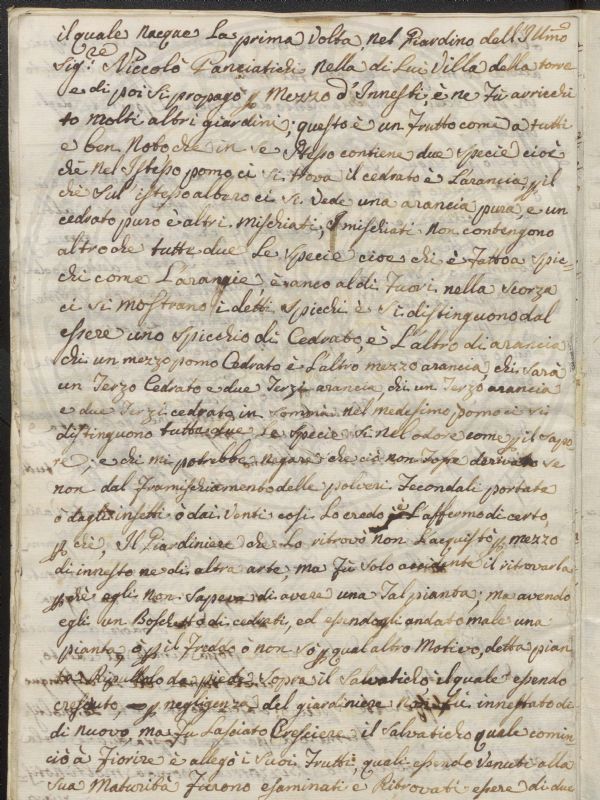 il quale nacque La prima Volta, nel Giardino dell'Illmo
Sig.re Niccolò Panciatichi nella di Lui Villa della torre
e di poi si propagò p Mezzo d'Innesti, è ne fù arricchi
to molti altri giardini; questo è un frutto come à tutti
è ben Noto che in se stesso contiene due specie cioè
che nel Istesso pomo ci si trova il cedrato è L'arancia p il
chè sul istesso albero ci si Vede una arancia pura, e un
cedrato puro è altri mischiati, i mischiati non contengono
altro che tutte due Le Specie cioe chi è fatto a spic=
chi come L'arangie, è ranco al di fuori nella scorza
ci si mostrano i detti spicchi è si distinguono dal
essere uno spicchio di Cedrato, è L'altro di arancia
chi un mezzo pomo Cedrato è L'altro mezzo arancia, chi sarà
un Terzo Cedrato e due Terzi arancia, chi un Terzo arancia
e due Terzi cedrato, in somma nel medesimo pomo ci si
distinguono tutte due le specie si nel odore come p il sapo
re; e chi mi potrebbe negare che ciò non fosse derivato se
non dal framischiamento delle polveri fecondali portate
ò dagli insetti ò dai Venti così Lo credo è L'affermo di certo,
p chè, Il Giardiniere che Lo ritrovò non L'acquistò p mezzo
di innesto ne di altra arte, ma fù solo accidente il ritrovarla
p chè egli non sapeva di avere una Tal pianta; ma avendo
egli un Boschetto di cedrati, ed essendogli andato male una
pianta, ò p il freddo ò non sò p qual altro Motivo, detta pian
ta Ripullolò da piede sopra il Salvatico il quale essendo
cresciuto, p negligenza del giardiniere non fù innestato di
di nuovo, ma fu Lasciato Cresciere il salvatico quale comin
ciò à fiorire è allegò i suoi frutti, quali essendo Venuti alla
sua Maturità furono esaminati e Ritrovati essere di due